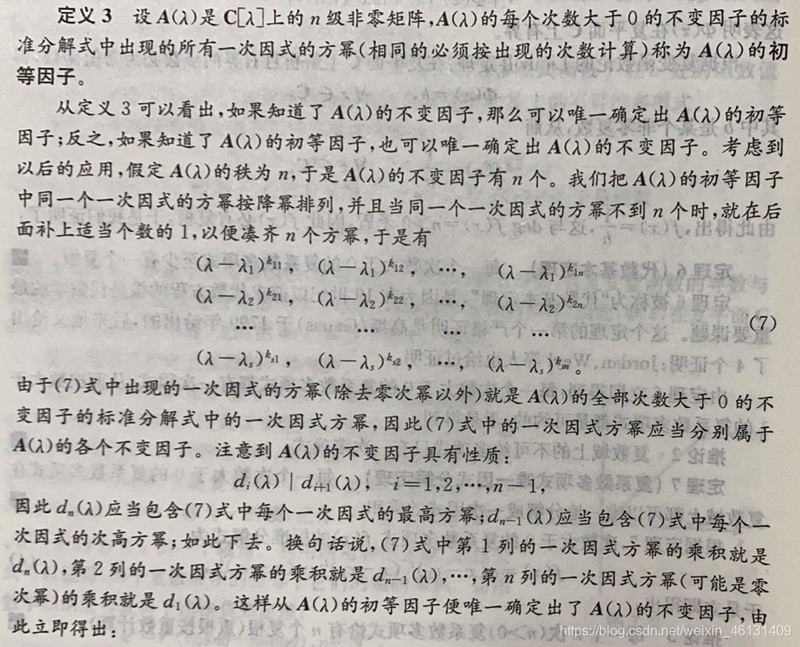 定义 3 设 A(λ)是 C[λ]上的 n 级非零矩阵,A(λ)的每个次数大于 0 的不变因子的标
准分解式中出现的所有一次因式的方幂(相同的必须按出现的次数计算)称为 A(λ)的初
等因子。
从定义 3 可以看出,如果知道了 A(λ)的不变因子,那么可以唯一确定出 A(λ)的初等
因子;反之,如果知道了 A(λ)的初等因子,也可以唯一确定出 A(λ)的不变因子。考虑到
以后的应用,假定 A(λ)的秩为 n,于是 A(λ)的不变因子有 n 个。我们把 A(λ)的初等因子
中同一个一次因式的方幂按降幂排列,并且当同一个一次因式的方幂不到 n 个时,就在后
面补上适当个数的 1,以便凑齐 n 个方幂,于是有
(λ-λ₁)^{k₁₁}, (λ-λ₁)^{k₁₂}, …, (λ-λ₁)^{k₁ₙ}
(λ-λ₂)^{k₂₁}, (λ-λ₂)^{k₂₂}, …, (λ-λ₂)^{k₂ₙ}
… … … …
(7)
(λ-λₛ)^{kₛ₁}, (λ-λₛ)^{kₛ₂}, …, (λ-λₛ)^{kₛₙ}。
由于(7)式中出现的一次因式的方幂(除去零次幂以外)就是 A(λ)的全部次数大于 0 的不
变因子的标准分解式中的一次因式方幂,因此(7)式中的一次因式方幂应当分别属于
A(λ)的各个不变因子。注意到 A(λ)的不变因子具有性质:
dᵢ(λ) | dᵢ₊₁(λ), i=1,2,…,n-1,
因此 dₙ(λ)应当包含(7)式中每个一次因式的最高方幂;dₙ₋₁(λ)应当包含(7)式中每个一
次因式的次高方幂;如此下去。换句话说,(7)式中第 1 列的一次因式方幂的乘积就是
dₙ(λ),第 2 列的一次因式方幂的乘积就是 dₙ₋₁(λ),…,第 n 列的一次因式方幂(可能是零
次幂)的乘积就是 d₁(λ)。这样从 A(λ)的初等因子便唯一确定出了 A(λ)的不变因子,由
此立即得出:
https://blog.csdn.net/weixin_46131409